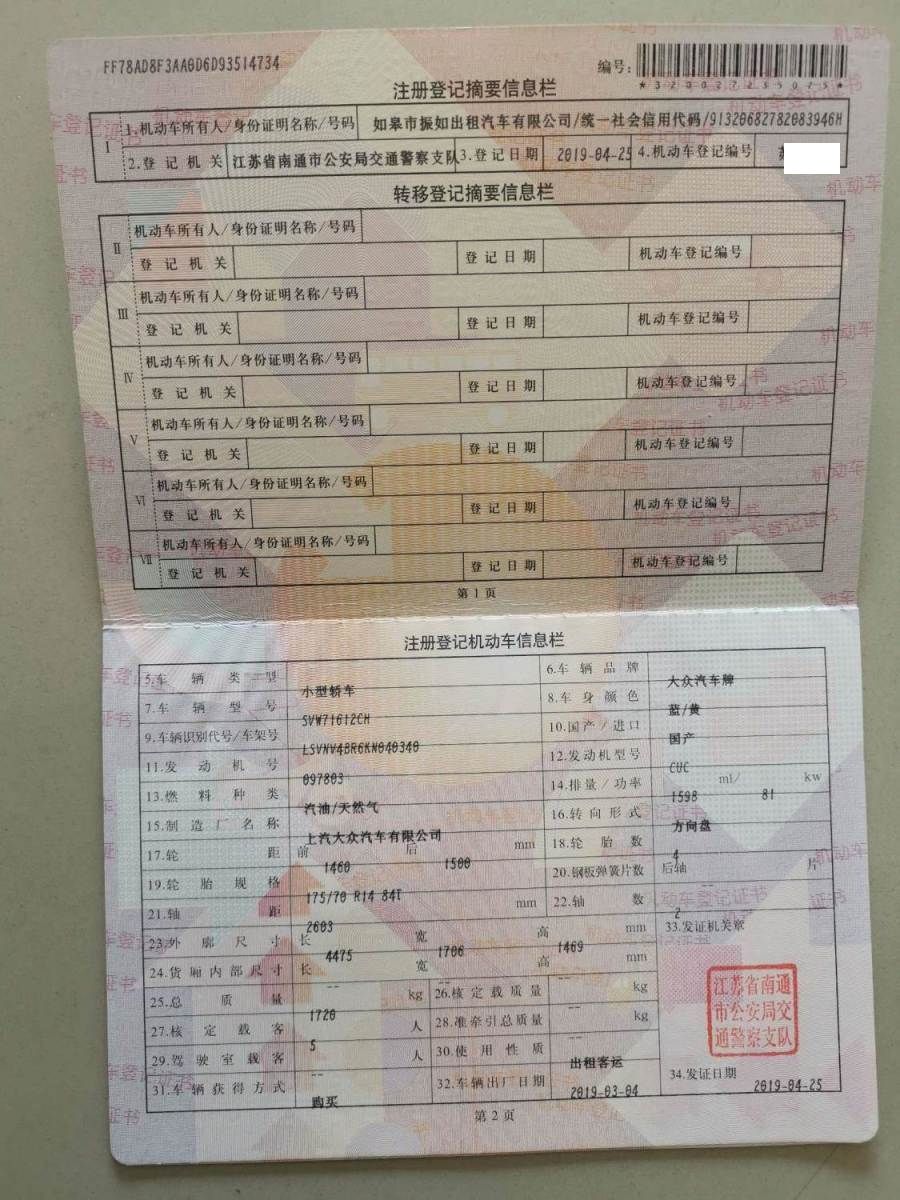 FF78AD8F3AA0D6D93514734
编号：
*320027235075*
注册登记摘要信息栏
I
1.机动车所有人/身份证明名称/号码 如皋市振如出租汽车有限公司/统一社会信用代码/91320682782083946H
2.登记机关 江苏省南通市公安局交通警察支队 3.登记日期 2019-04-25 4.机动车登记编号 苏
转移登记摘要信息栏
II
机动车所有人/身份证明名称/号码
登记机关 登记日期 机动车登记编号
III
机动车所有人/身份证明名称/号码
登记机关 登记日期 机动车登记编号
IV
机动车所有人/身份证明名称/号码
登记机关 登记日期 机动车登记编号
V
机动车所有人/身份证明名称/号码
登记机关 登记日期 机动车登记编号
VI
机动车所有人/身份证明名称/号码
登记机关 登记日期 机动车登记编号
VII
机动车所有人/身份证明名称/号码
登记机关 登记日期 机动车登记编号
第1页
注册登记机动车信息栏
5.车辆类型 小型轿车 6.车辆品牌 大众汽车牌
7.车辆型号 SVW71612CH 8.车身颜色 蓝/黄
9.车辆识别代号/车架号 LSVNV4BR6KN040340 10.国产/进口 国产
11.发动机号 097803 12.发动机型号 CUC
13.燃料种类 汽油/天然气 14.排量/功率 1598 ml/ 81 kw
15.制造厂名称 上汽大众汽车有限公司 16.转向形式 方向盘
17.轮距 前 1460 后 1500 mm 18.轮胎数 4
19.轮胎规格 175/70 R14 84T 20.钢板弹簧片数 后轴 -- 片
21.轴距 2603 mm 22.轴数 2
23.外廓尺寸 长 4475 宽 1706 高 1469 mm 33.发证机关章
24.货厢内部尺寸 长 -- 宽 -- 高 -- mm
25.总质量 1720 kg 26.核定载质量 -- kg
27.核定载客 5 人 28.准牵引总质量 -- kg
29.驾驶室载客 -- 人 30.使用性质 出租客运
31.车辆获得方式 购买 32.车辆出厂日期 2019-03-04 34.发证日期 2019-04-25
江苏省南通
市公安局交
通警察支队
第2页